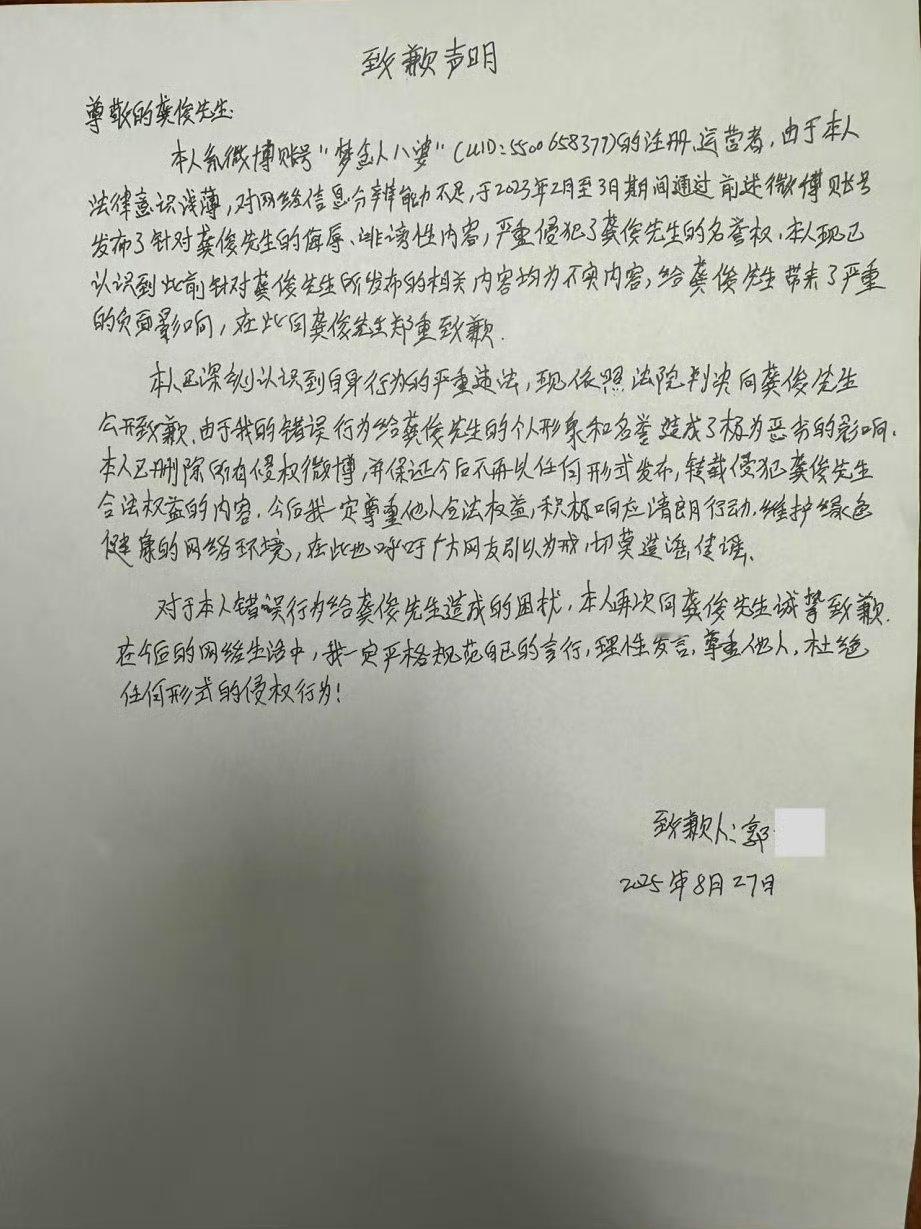 致歉声明
尊敬的龚俊先生:
本人系微博账号“梦金人八婆”(UID:5500658377)的注册、运营者,由于本人
法律意识浅薄,对网络信息分辨能力不足,于2023年2月至3月期间通过前述微博账号
发布了针对龚俊先生的侮辱、诽谤性内容,严重侵犯了龚俊先生的名誉权,本人现已
认识到此前针对龚俊先生所发布的相关内容均为不实内容,给龚俊先生带来了严重
的负面影响,在此向龚俊先生郑重致歉.
本人已深刻认识到自身行为的严重违法,现依照法院判决向龚俊先生
公开致歉.由于我的错误行为给龚俊先生的个人形象和名誉造成了极为恶劣的影响.
本人已删除所有侵权微博,并保证今后不再以任何形式发布,转载侵犯龚俊先生
合法权益的内容.今后我一定尊重他人合法权益,积极响应清朗行动,维护绿色
健康的网络环境,在此也呼吁广大网友引以为戒,切莫造谣、传谣.
对于本人错误行为给龚俊先生造成的困扰,本人再次向龚俊先生诚挚致歉.
在今后的网络生活中,我一定严格规范自己的言行,理性发言,尊重他人,杜绝
任何形式的侵权行为!
致歉人:郭
2025年8月27日